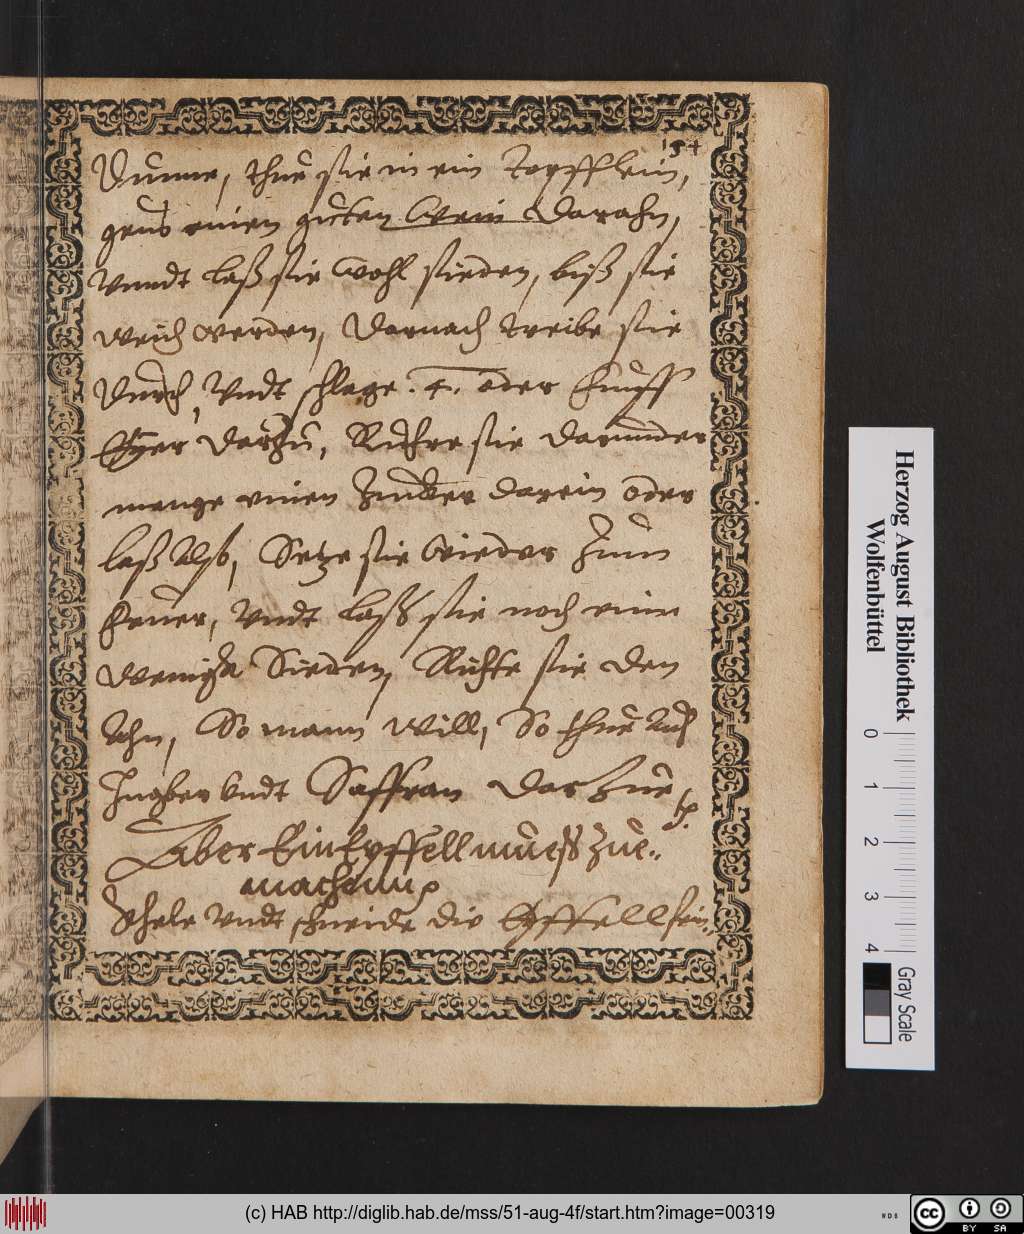 154
Dünne, thue sie in ein Topfflein,
geus einen guten Wein darahn,
Vnndt laß sie wohl sieden, biß sie
weich werden, Darnach treibe sie
Durch, Vndt schlage .4. oder fünff
Eyer darzu, Rühre sie darunder
menge einen Zucker darein oder
laß Also, Setze sie wieder zum
feuer, Vndt laß sie noch eine
wenigk Sieden, Richte sie den
Ahn, So mann will, So thue auch
Ingber Vndt Saffran darzue
Aber Ein Epffell mueß zue..
machenn
Schele Vndt schneide die Epffell fein..
Herzog August Bibliothek
Wolfenbüttel
0 1 2 3 4
Gray Scale
(c) HAB http://diglib.hab.de/mss/51-aug-4f/start.htm?image=00319
WDB
cc BY SA